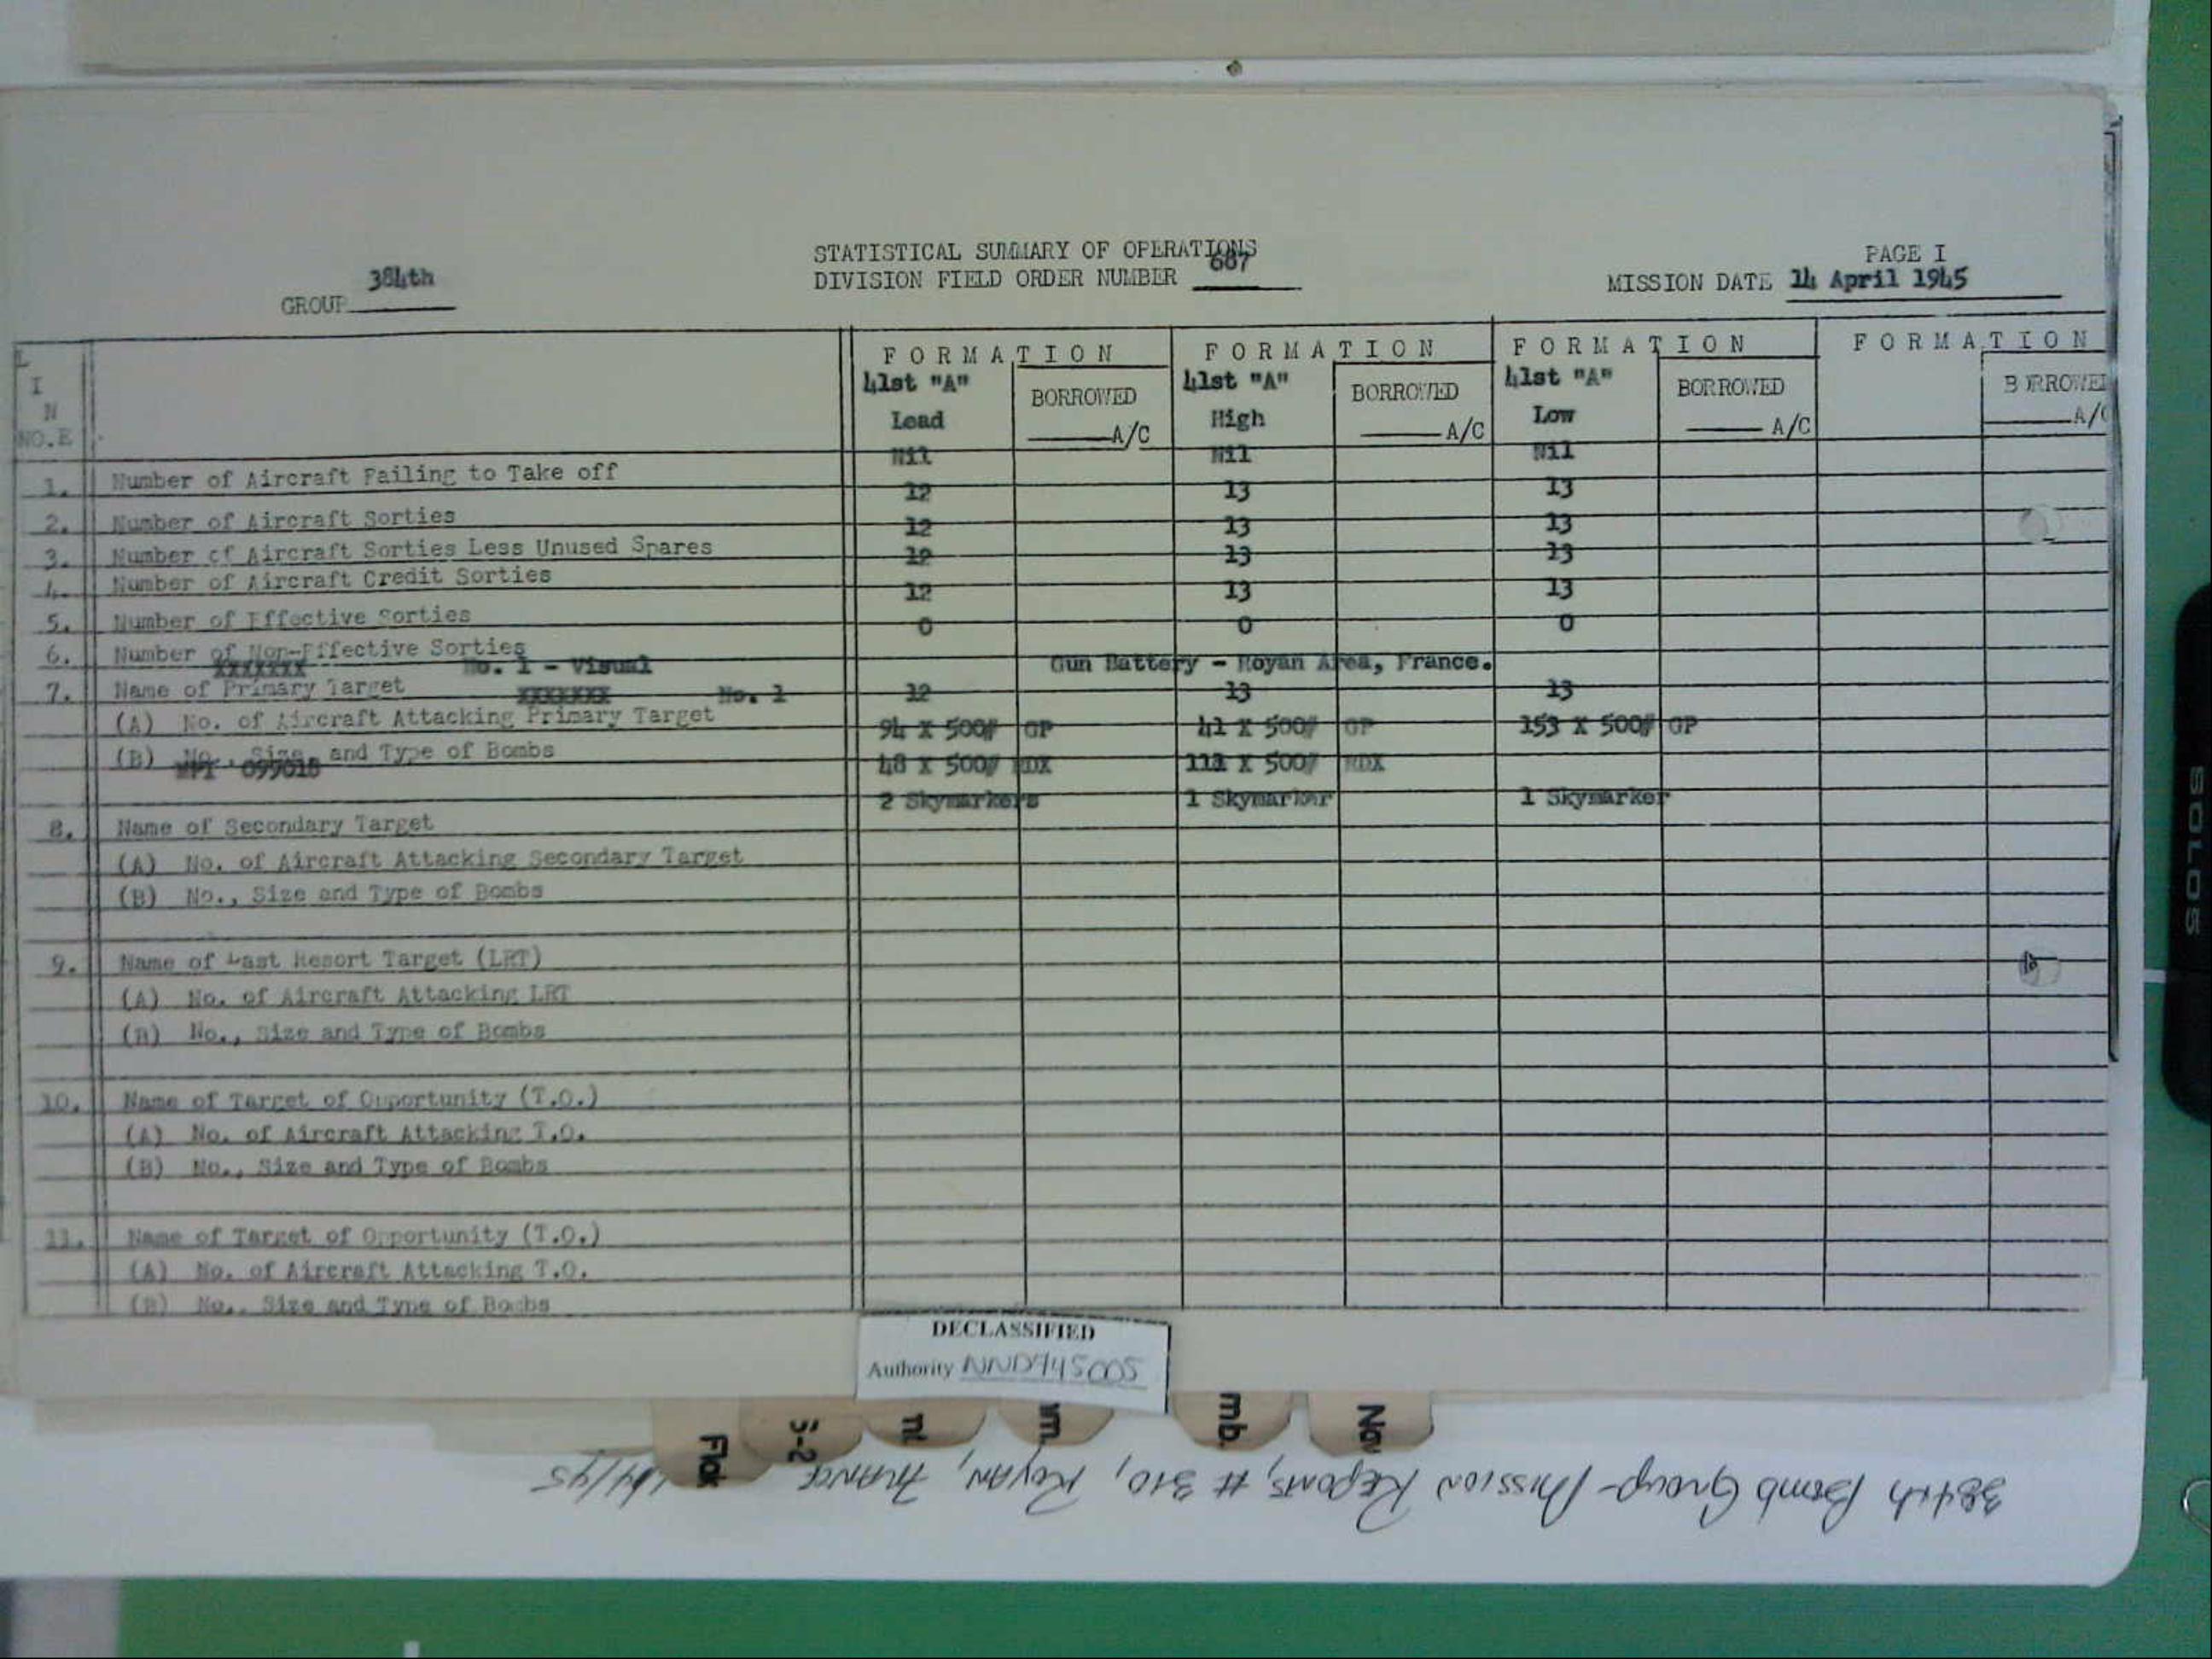 STATISTICAL SUMMARY OF OPERATIONS
PAGE I
GROUP 384th
DIVISION FIELD ORDER NUMBER 687
MISSION DATE 14 April 1945
L I N E NO.
FORMATION FORMATION FORMATION FORMATION
41st "A" Lead BORROWED A/C 41st "A" High BORROWED A/C 41st "A" Low BORROWED A/C BORROWED A/C
1. Number of Aircraft Failing to Take off Nil Nil Nil
2. Number of Aircraft Sorties 12 13 13
3. Number of Aircraft Sorties Less Unused Spares 12 13 13
4. Number of Aircraft Credit Sorties 12 13 13
5. Number of Effective Sorties 12 13 13
6. Number of Non-Effective Sorties 0 0 0
XXXXXXX No. 1 - Visual Gun Battery - Royan Area, France.
7. Name of Primary Target
XXXXXXX No. 1 12 13 13
(A) No. of Aircraft Attacking Primary Target
94 X 500# GP 41 X 500# GP 153 X 500# GP
(B) No., Size and Type of Bombs
MPI 099018 48 X 500# RDX X 500# RDX
2 Skymarkers 1 Skymarker 1 Skymarker
8. Name of Secondary Target
(A) No. of Aircraft Attacking Secondary Target
(B) No., Size and Type of Bombs
9. Name of Last Resort Target (LRT)
(A) No. of Aircraft Attacking LRT
(B) No., Size and Type of Bombs
10. Name of Target of Opportunity (T.O.)
(A) No. of Aircraft Attacking T.O.
(B) No., Size and Type of Bombs
11. Name of Target of Opportunity (T.O.)
(A) No. of Aircraft Attacking T.O.
(B) No., Size and Type of Bombs
DECLASSIFIED
Authority NND945005
Flak
S-2
mb.
Nav
384th Bomb Group - Mission Reports, # 310, Royan, France
SOLOS